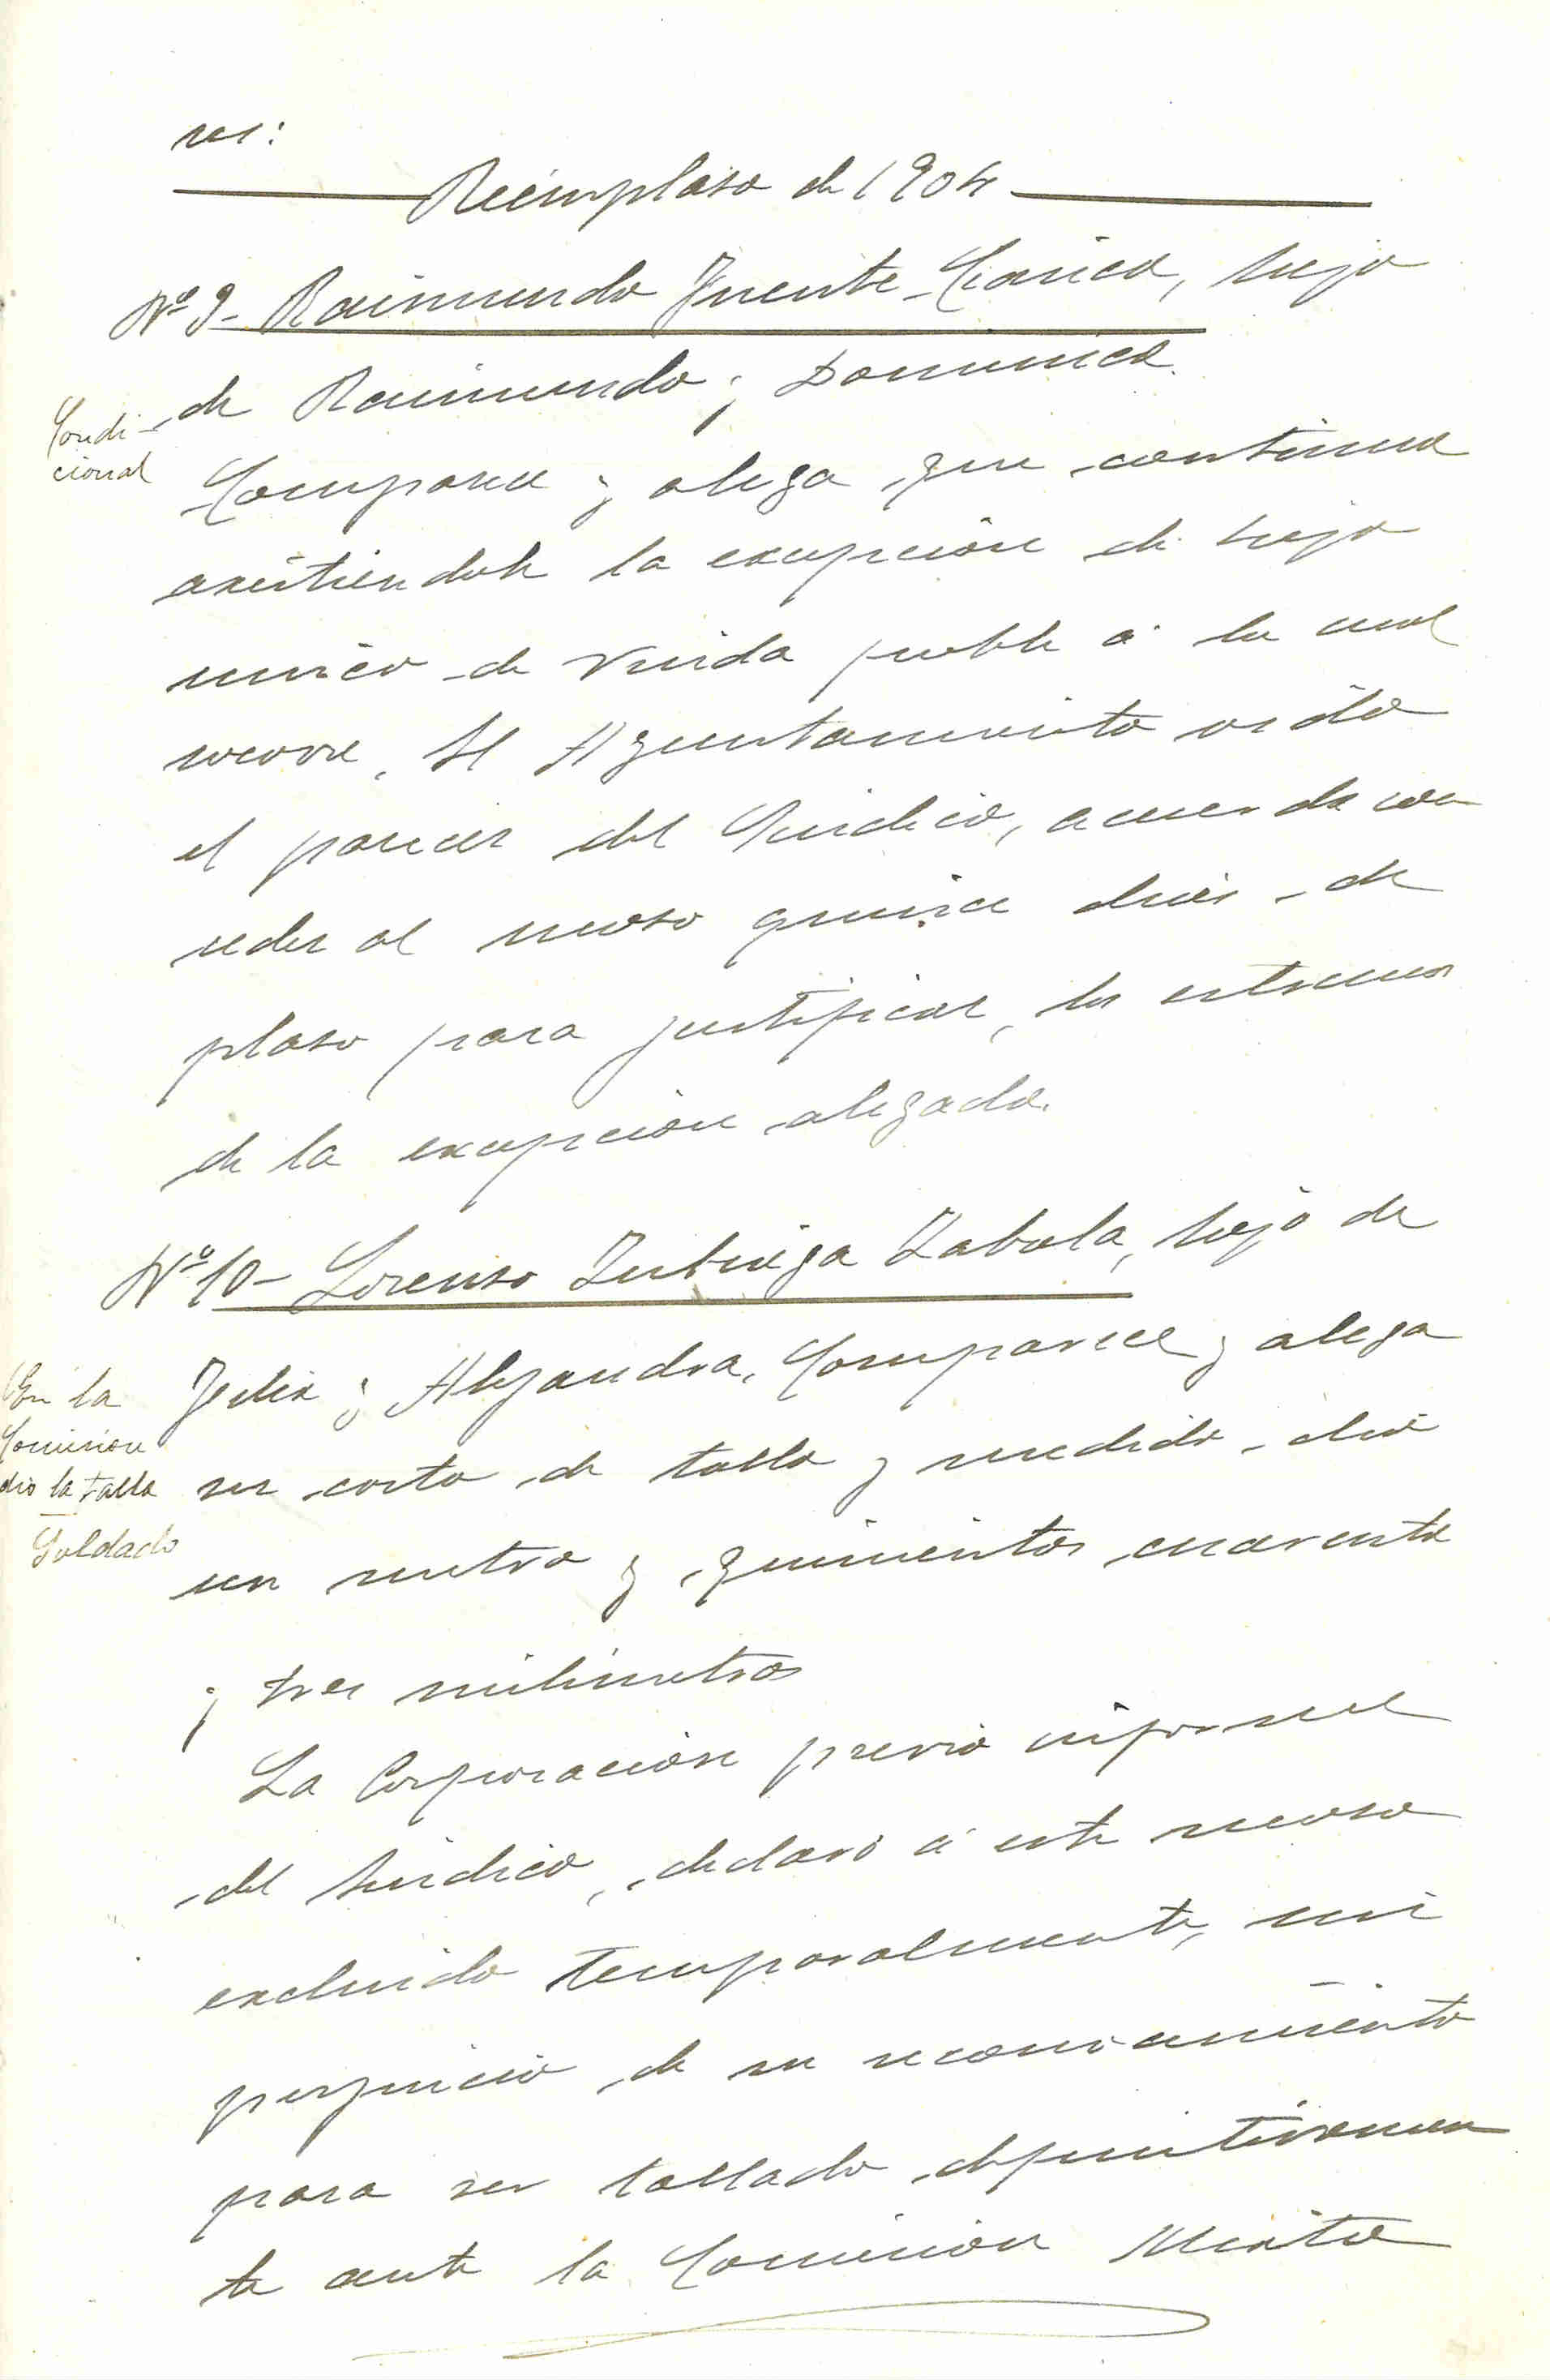 res:
Reemplaso de 1904
Nº 9- Raimundo Fuente Garica, hijo
de Raimundo y Dominica.
Condi-
cional
Comparece y alega que continua
asistiendole la excepción de hijo
unico de viuda pobre á la cual
socorre, El Ayuntamiento oido
el parecer del Sindico, acuerda con
ceder al moso quince dias de
plaso para justificar, los estremos
de la excepción alegada.
Nº 10- Lorenso Zubiaga Zabala, hijo de
Felix y Alejandra, Comparece y alega
En la
Comision
dio la talla
Soldado
ser corto de talla y medido dió
un metro y quinientos cuarenta
y tres milimetros
La Corporación previo informe
del Sindico, declaró á este moso
excluido temporalmente, sin
perjuicio de su reconocimiento
para ser tallado definitivamen
te ante la Comision Mixta